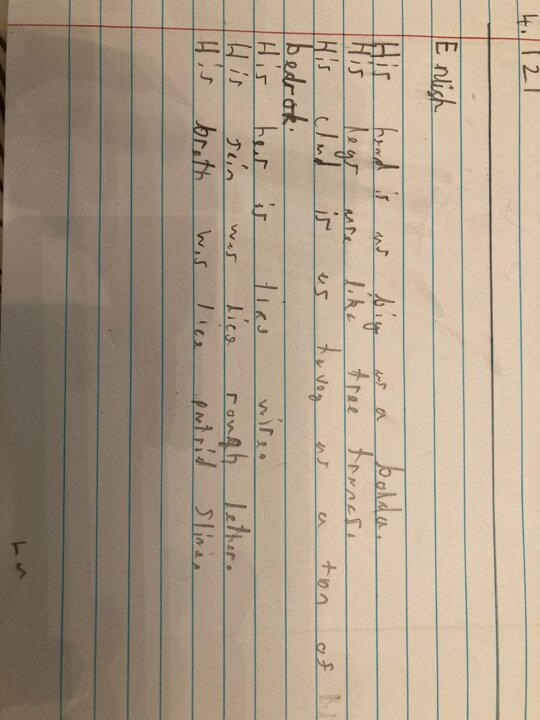 4.121
Enlish
His hend is as big as a bolda.
His legs are like tree truncs.
His clud is as havey as a ton of
bedrok.
His her is like wire.
His scin was lice rough lether.
His breth was lice putrid slime.